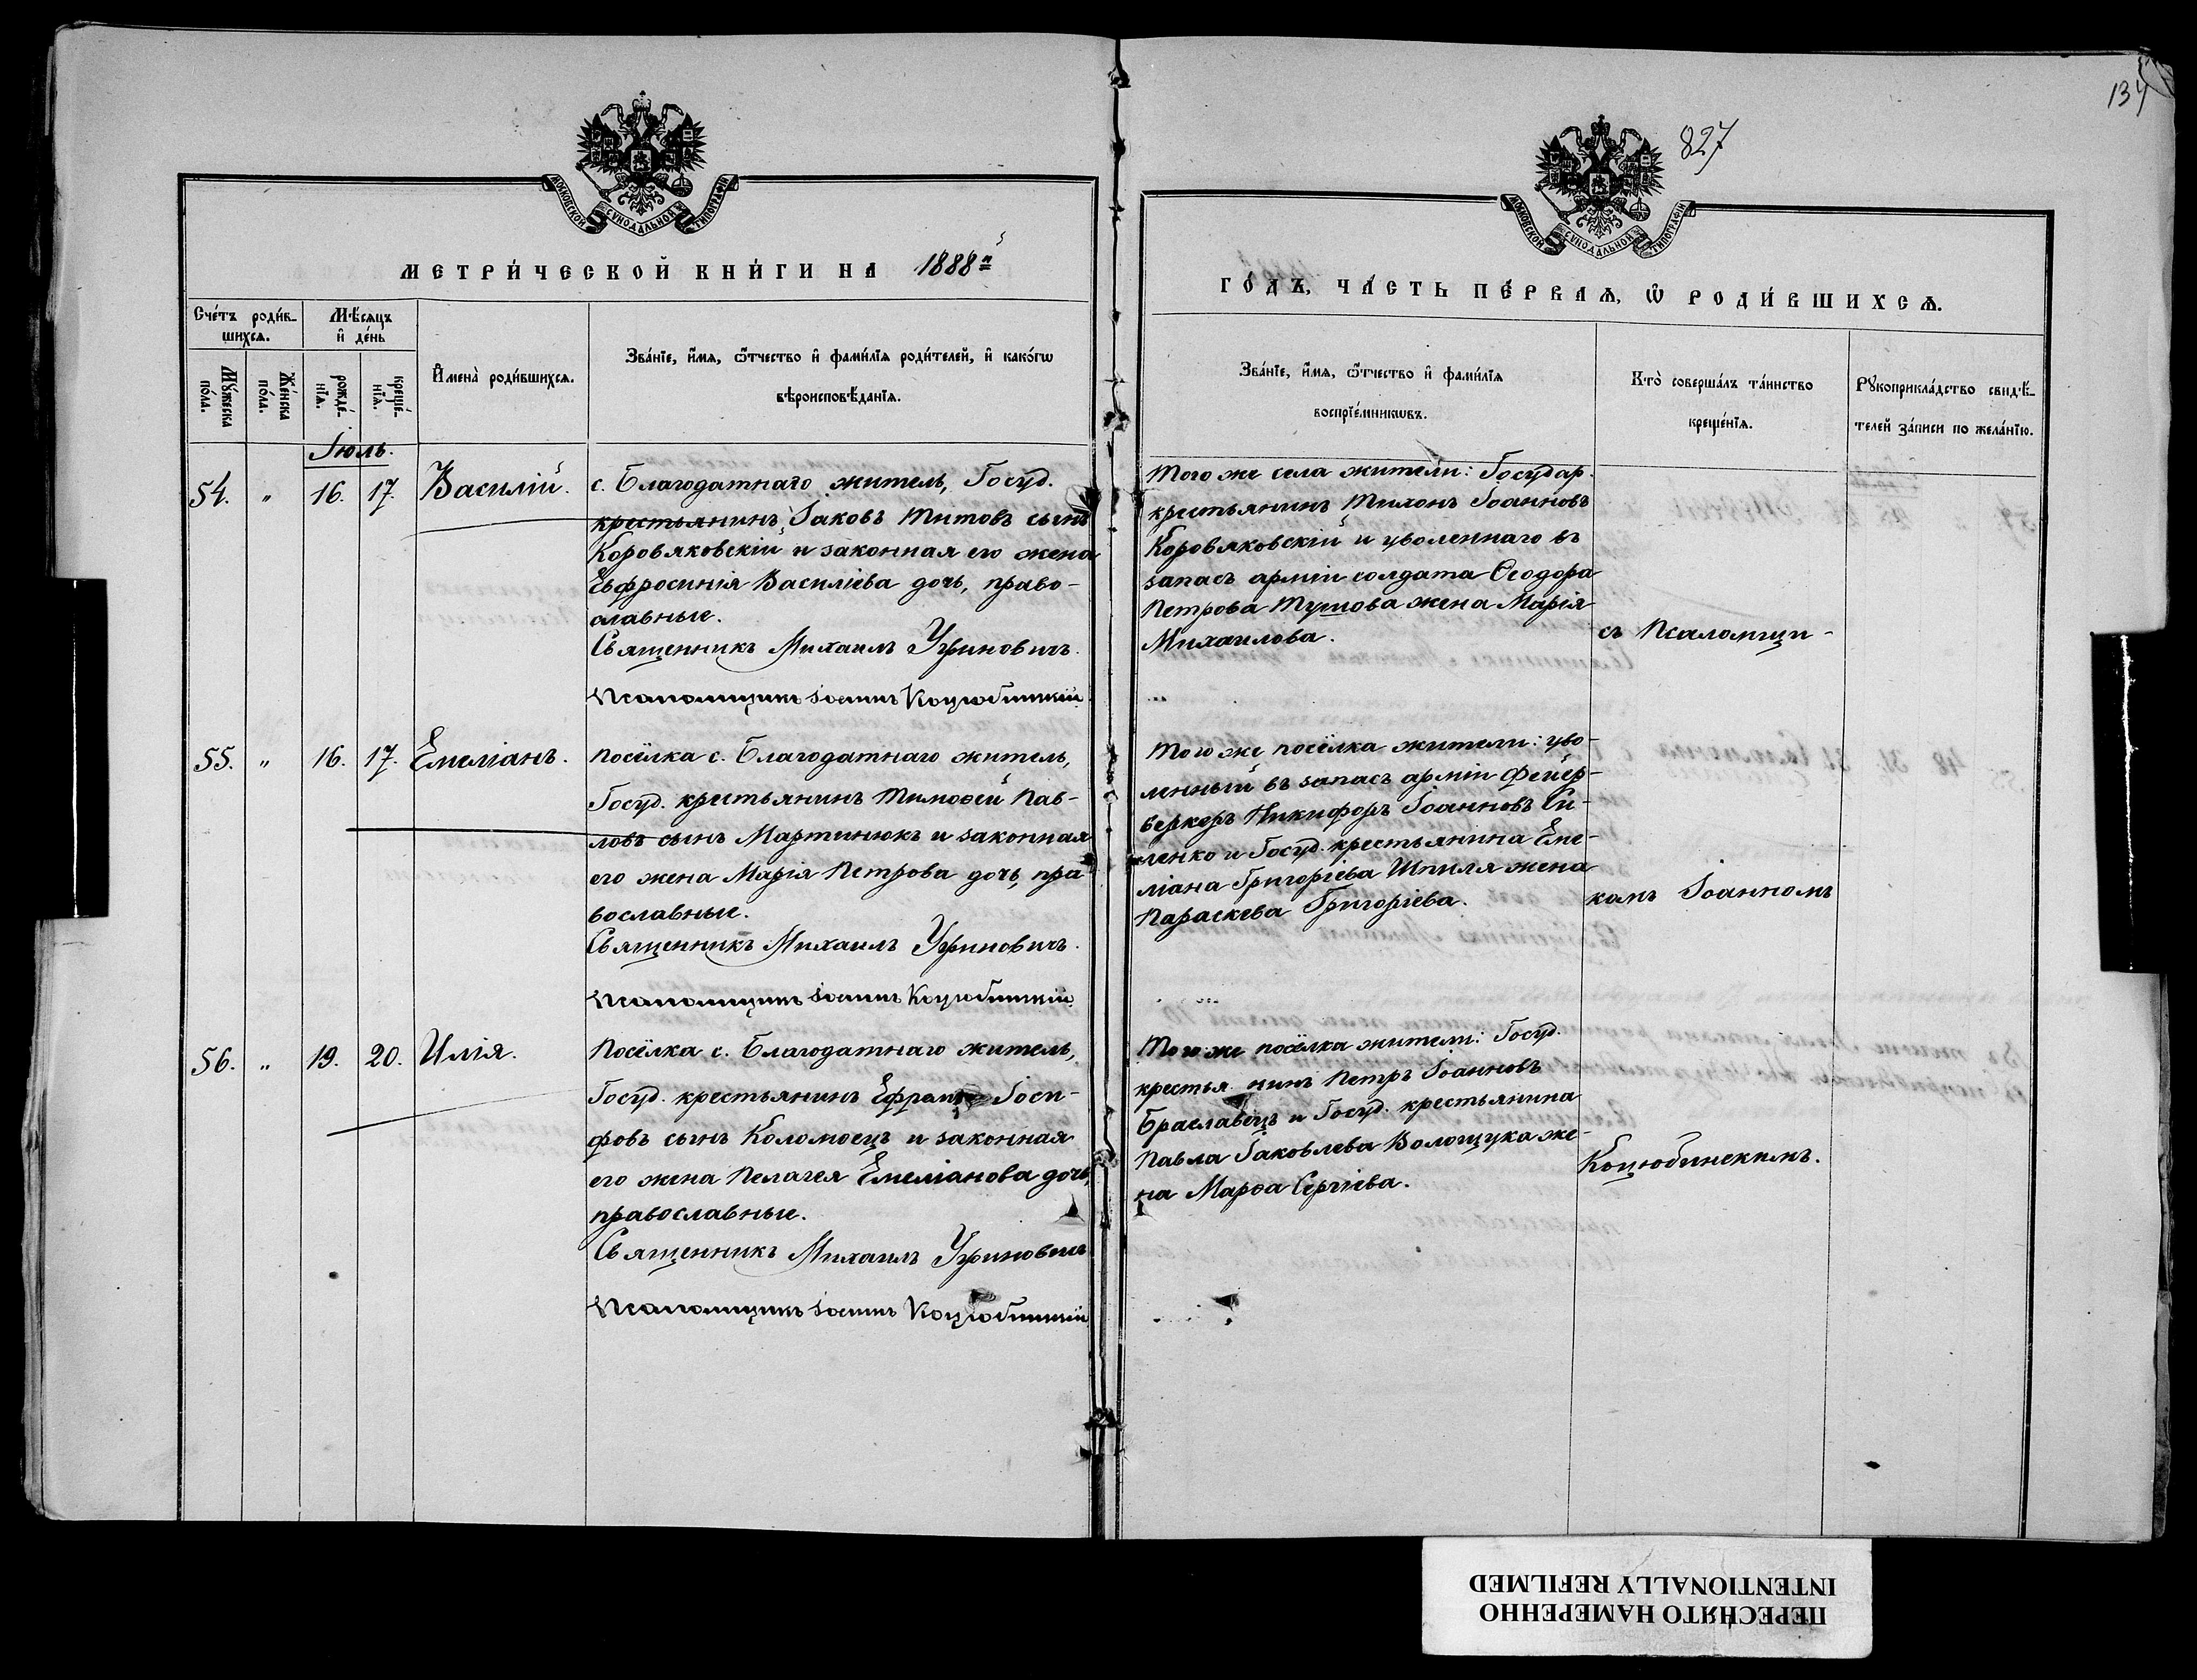 134
827
МОСКОВСКОЙ СѴНОДАЛЬНОЙ ТИПОГРАФІИ
МОСКОВСКОЙ СѴНОДАЛЬНОЙ ТИПОГРАФІИ
МЕТРИ́ЧЕСКОЙ КНИ́ГИ НА 1888й
ГО́ДЪ, ЧА́СТЬ ПЕ́РВАѦ, Ѡ҆ РОДИ́ВШИХСѦ.
Сче́тъ роди́в-
шихсѧ.
Мѣ́сѧцъ
и҆ де́нь
Мꙋ́жеска
по́ла.
Же́нска
по́ла.
рожде́-
нїѧ.
креще́-
нїѧ.
И҆мена̀ роди́вшихсѧ.
Зва́нїе, и҆́мѧ, ѻ҆́тчество и҆ фами́лїѧ роди́телей, и҆ како́гѡ
вѣроисповѣ́данїѧ.
Зва́нїе, и҆́мѧ, ѻ҆́тчество и҆ фами́лїѧ
воспрїе́мникѡвъ.
Кто̀ соверша́лъ та́инство
креще́нїѧ.
Рꙋкоприкла́дство свидѣ́-
телей за́писи по жела́нїю.
Іюль.
54. „ 16. 17. Василій.
с. Благодатнаго житель, Госуд.
крестьянинъ Іаковъ Титовъ сынъ
Коровяковскій и законная его жена
Евфросинія Василіева дочь, право-
славные.
Священникъ Михаилъ Угриновичъ.
Псаломщикъ Іоаннъ Коцюбинскій.
Того же села жители: Государ.
крестьянинъ Тихонъ Іоанновъ
Коровяковскій и уволеннаго въ
запасъ арміи солдата Ѳеодора
Петрова жена Марія
Михаилова.
съ Псаломщи-
55. „ 16. 17. Емеліанъ.
Посёлка с. Благодатнаго житель,
Госуд. крестьянинъ Тимоѳей Пав-
ловъ сынъ Мартинюкъ и законная
его жена Марія Петрова дочь, пра
вославные.
Священникъ Михаилъ Угриновичъ.
Псаломщикъ Іоаннъ Коцюбинскій.
Того же посёлка жители: уво-
ленный въ запасъ арміи фейер-
веркеръ Никифоръ Іоанновъ Си-
ленко и Госуд. крестьянина Еме-
ліана Григоріева Шпиля жена
Параскева Григоріева.
комъ Іоанномъ
56. „ 19. 20. Илія.
Посёлка с. Благодатнаго житель,
Госуд. крестьянинъ Іоси-
фовъ сынъ Коломоецъ и законная
его жена Пелагея Емеліанова дочь,
православные.
Священникъ Михаилъ Угриновичъ
Псаломщикъ Іоаннъ Коцюбинскій
Того же посёлка жители: Госуд.
крестьянинъ Петръ Іоанновъ
Браславецъ и Госуд. крестьянина
Павла Іаковлева Волощука же-
на Марѳа Сергіева.
Коцюбинскимъ.
ПЕРЕСНЯТО НАМЕРЕННО
INTENTIONALLY REFILMED